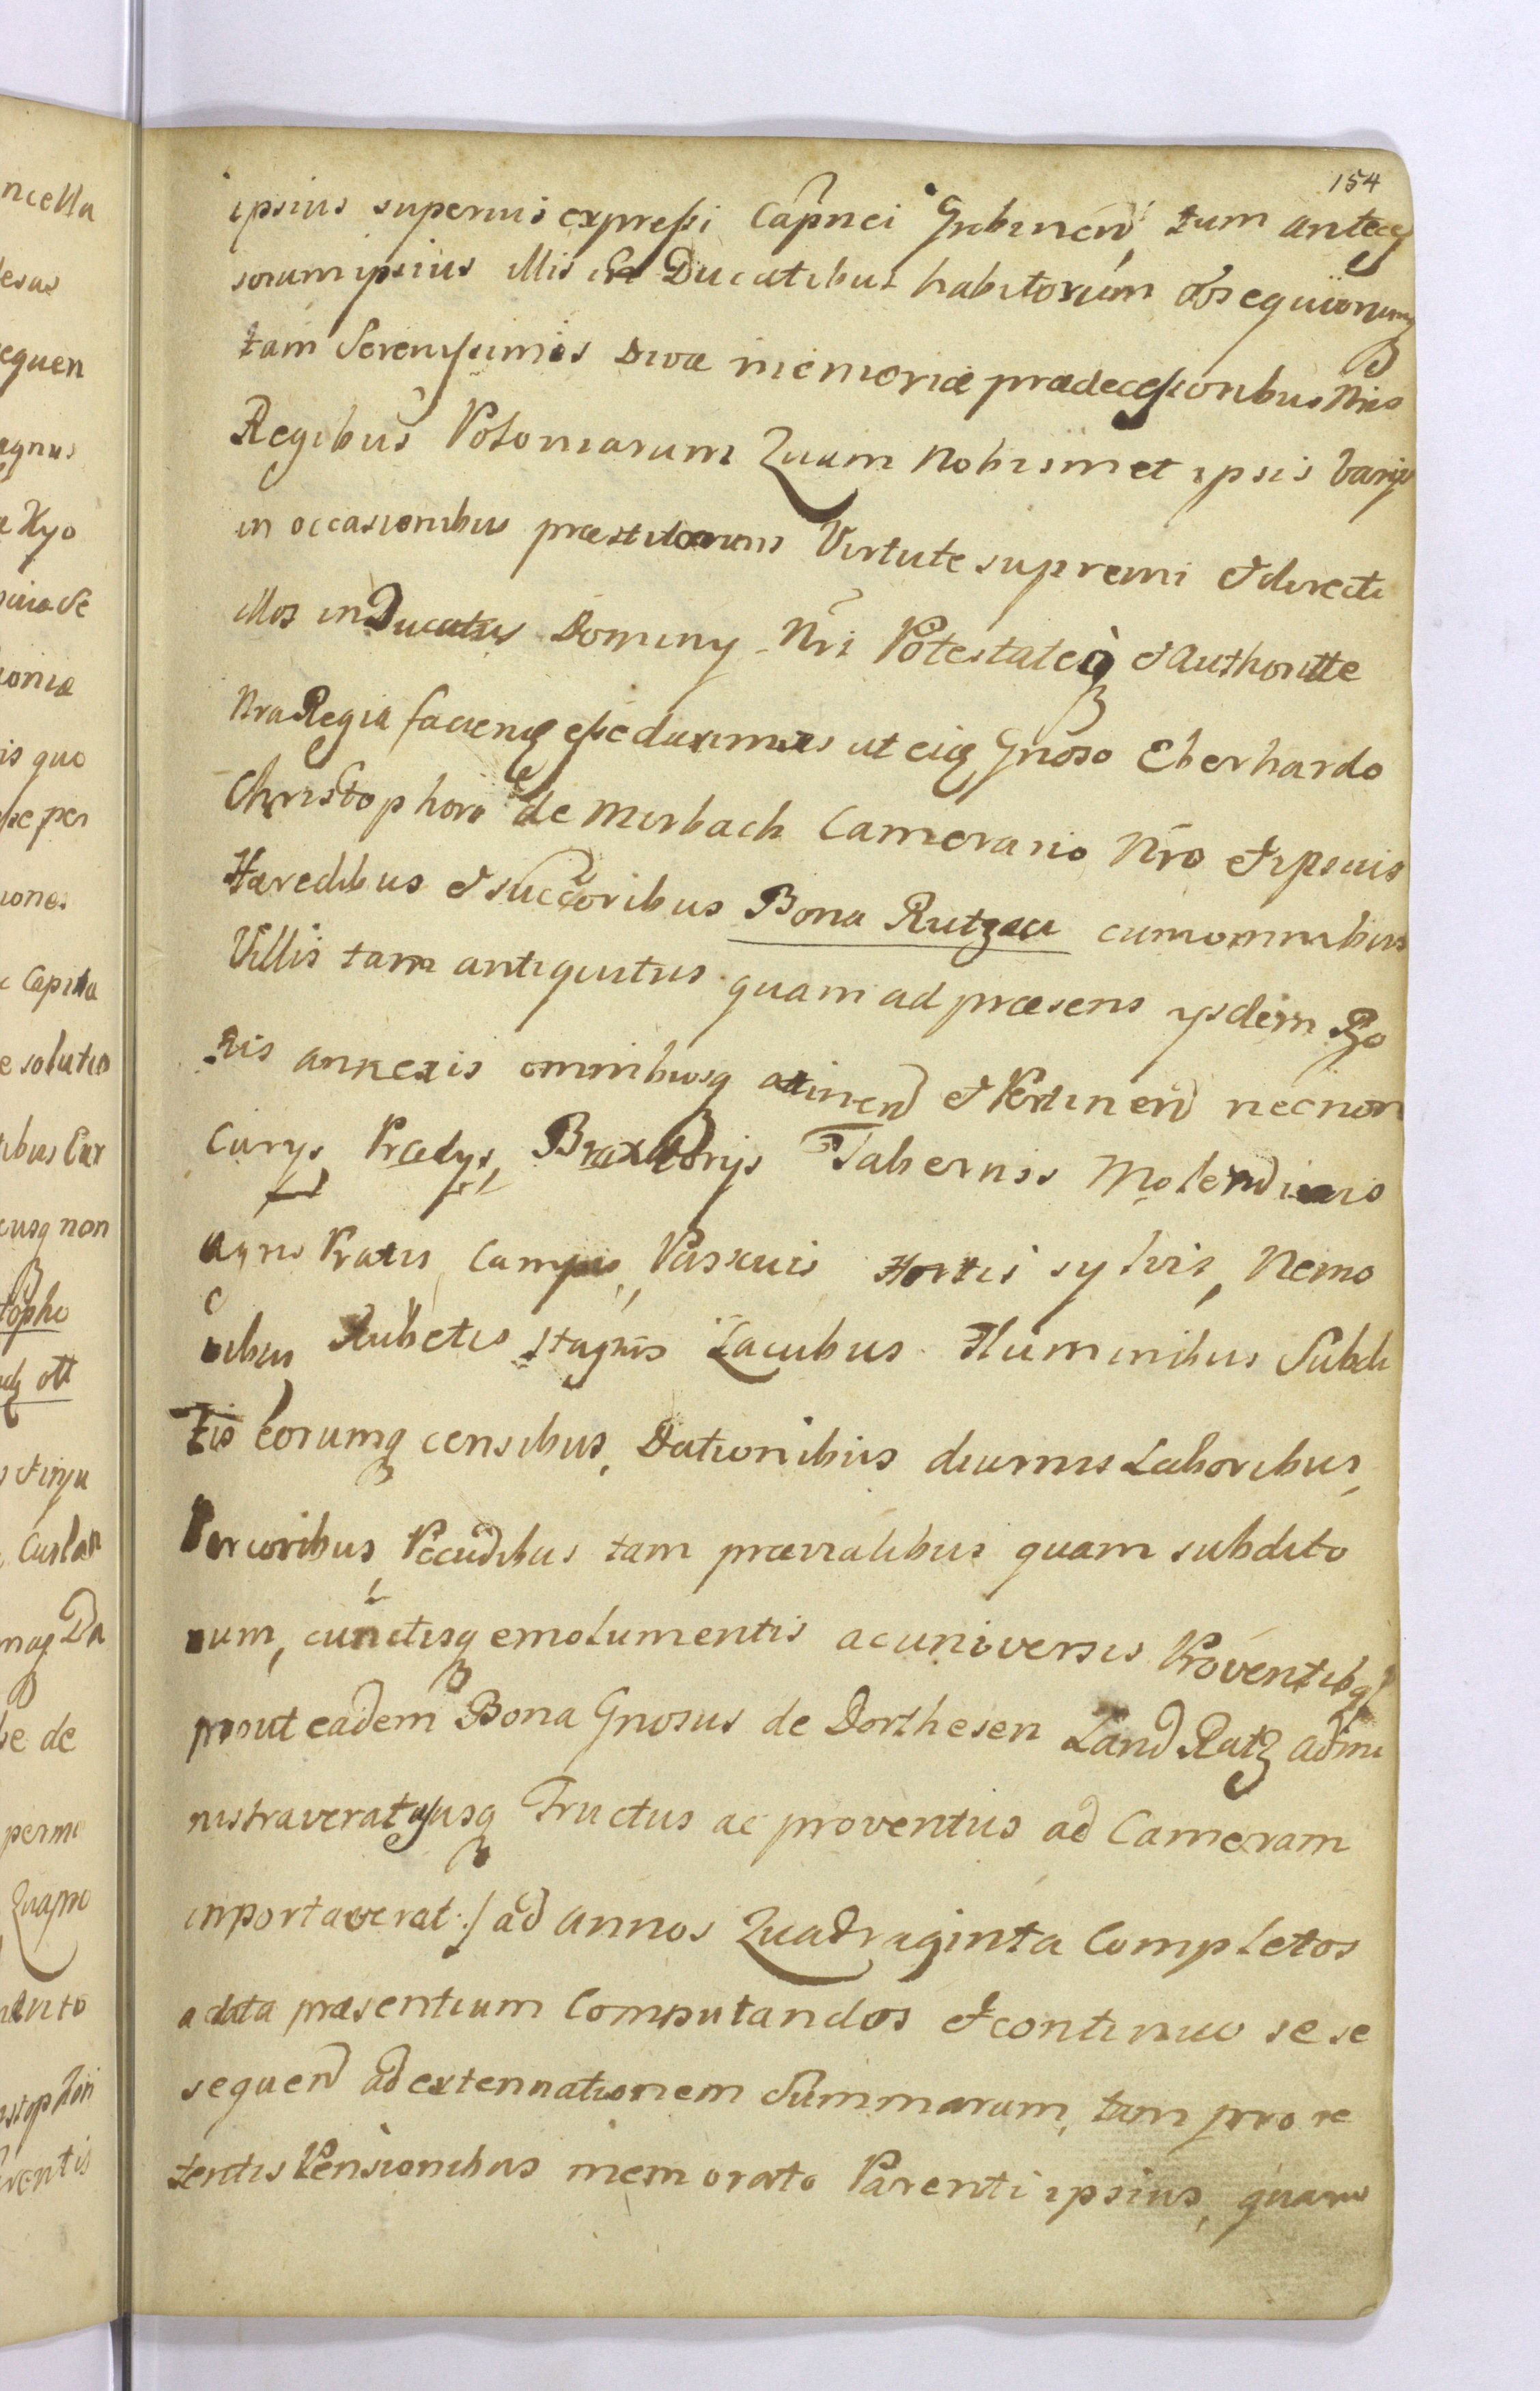 154
ipsius superius expressi Capnei Grobinen tum anteces
sorum ipsius illis in Ducatibus habitorum obsequiorum
tam Serenissimis Divæ memoriæ prædecessoribus Nris
Regibus Poloniarum Quam Nobismet ipsis varijs
in occasionibus præstitorum Virtute supremi et directi
illos in Ducatus Dominy Nri Potestateq et Authoritte
Nra Regia faciend esse duximus ut eidem Gnoso Eberhardo
Christophoro de Mirbach Camerario Nro et ipsius
Hæredibus et succoribus Bona Rutzau cum omnibus
Villis tam antiquitus quam ad præsens ysdem Bo
nis annexis omnibusq attinend et Pertinen necnon
Curys, Prædys, Braxatorijs Tabernis Molendinis
Agris Pratis, Campis, Pascuis Hortis sylvis, Nemo
ribus Rubetis stagnis Lacubus Fluminibus Subdi
tis eorumq censibus, Dationibus diurnis Laboribus,
Pecoribus, Pecudibus tam prædialibus quam subdito
rum, cunctisq emolumentis ac universis Proventibq
prout eadem Bona Gnosus de Dorthesen Land Ratz admi
nistraverat ejusq Fructus ac proventus ad Cameram
inportaverat :/ ad annos Quadraginta Completos
a data præsentium Computandos et continuo se se
sequend ad extennationem Summarum, tam pro re
tentis Pensionibus memorato Parenti ipsius, quam